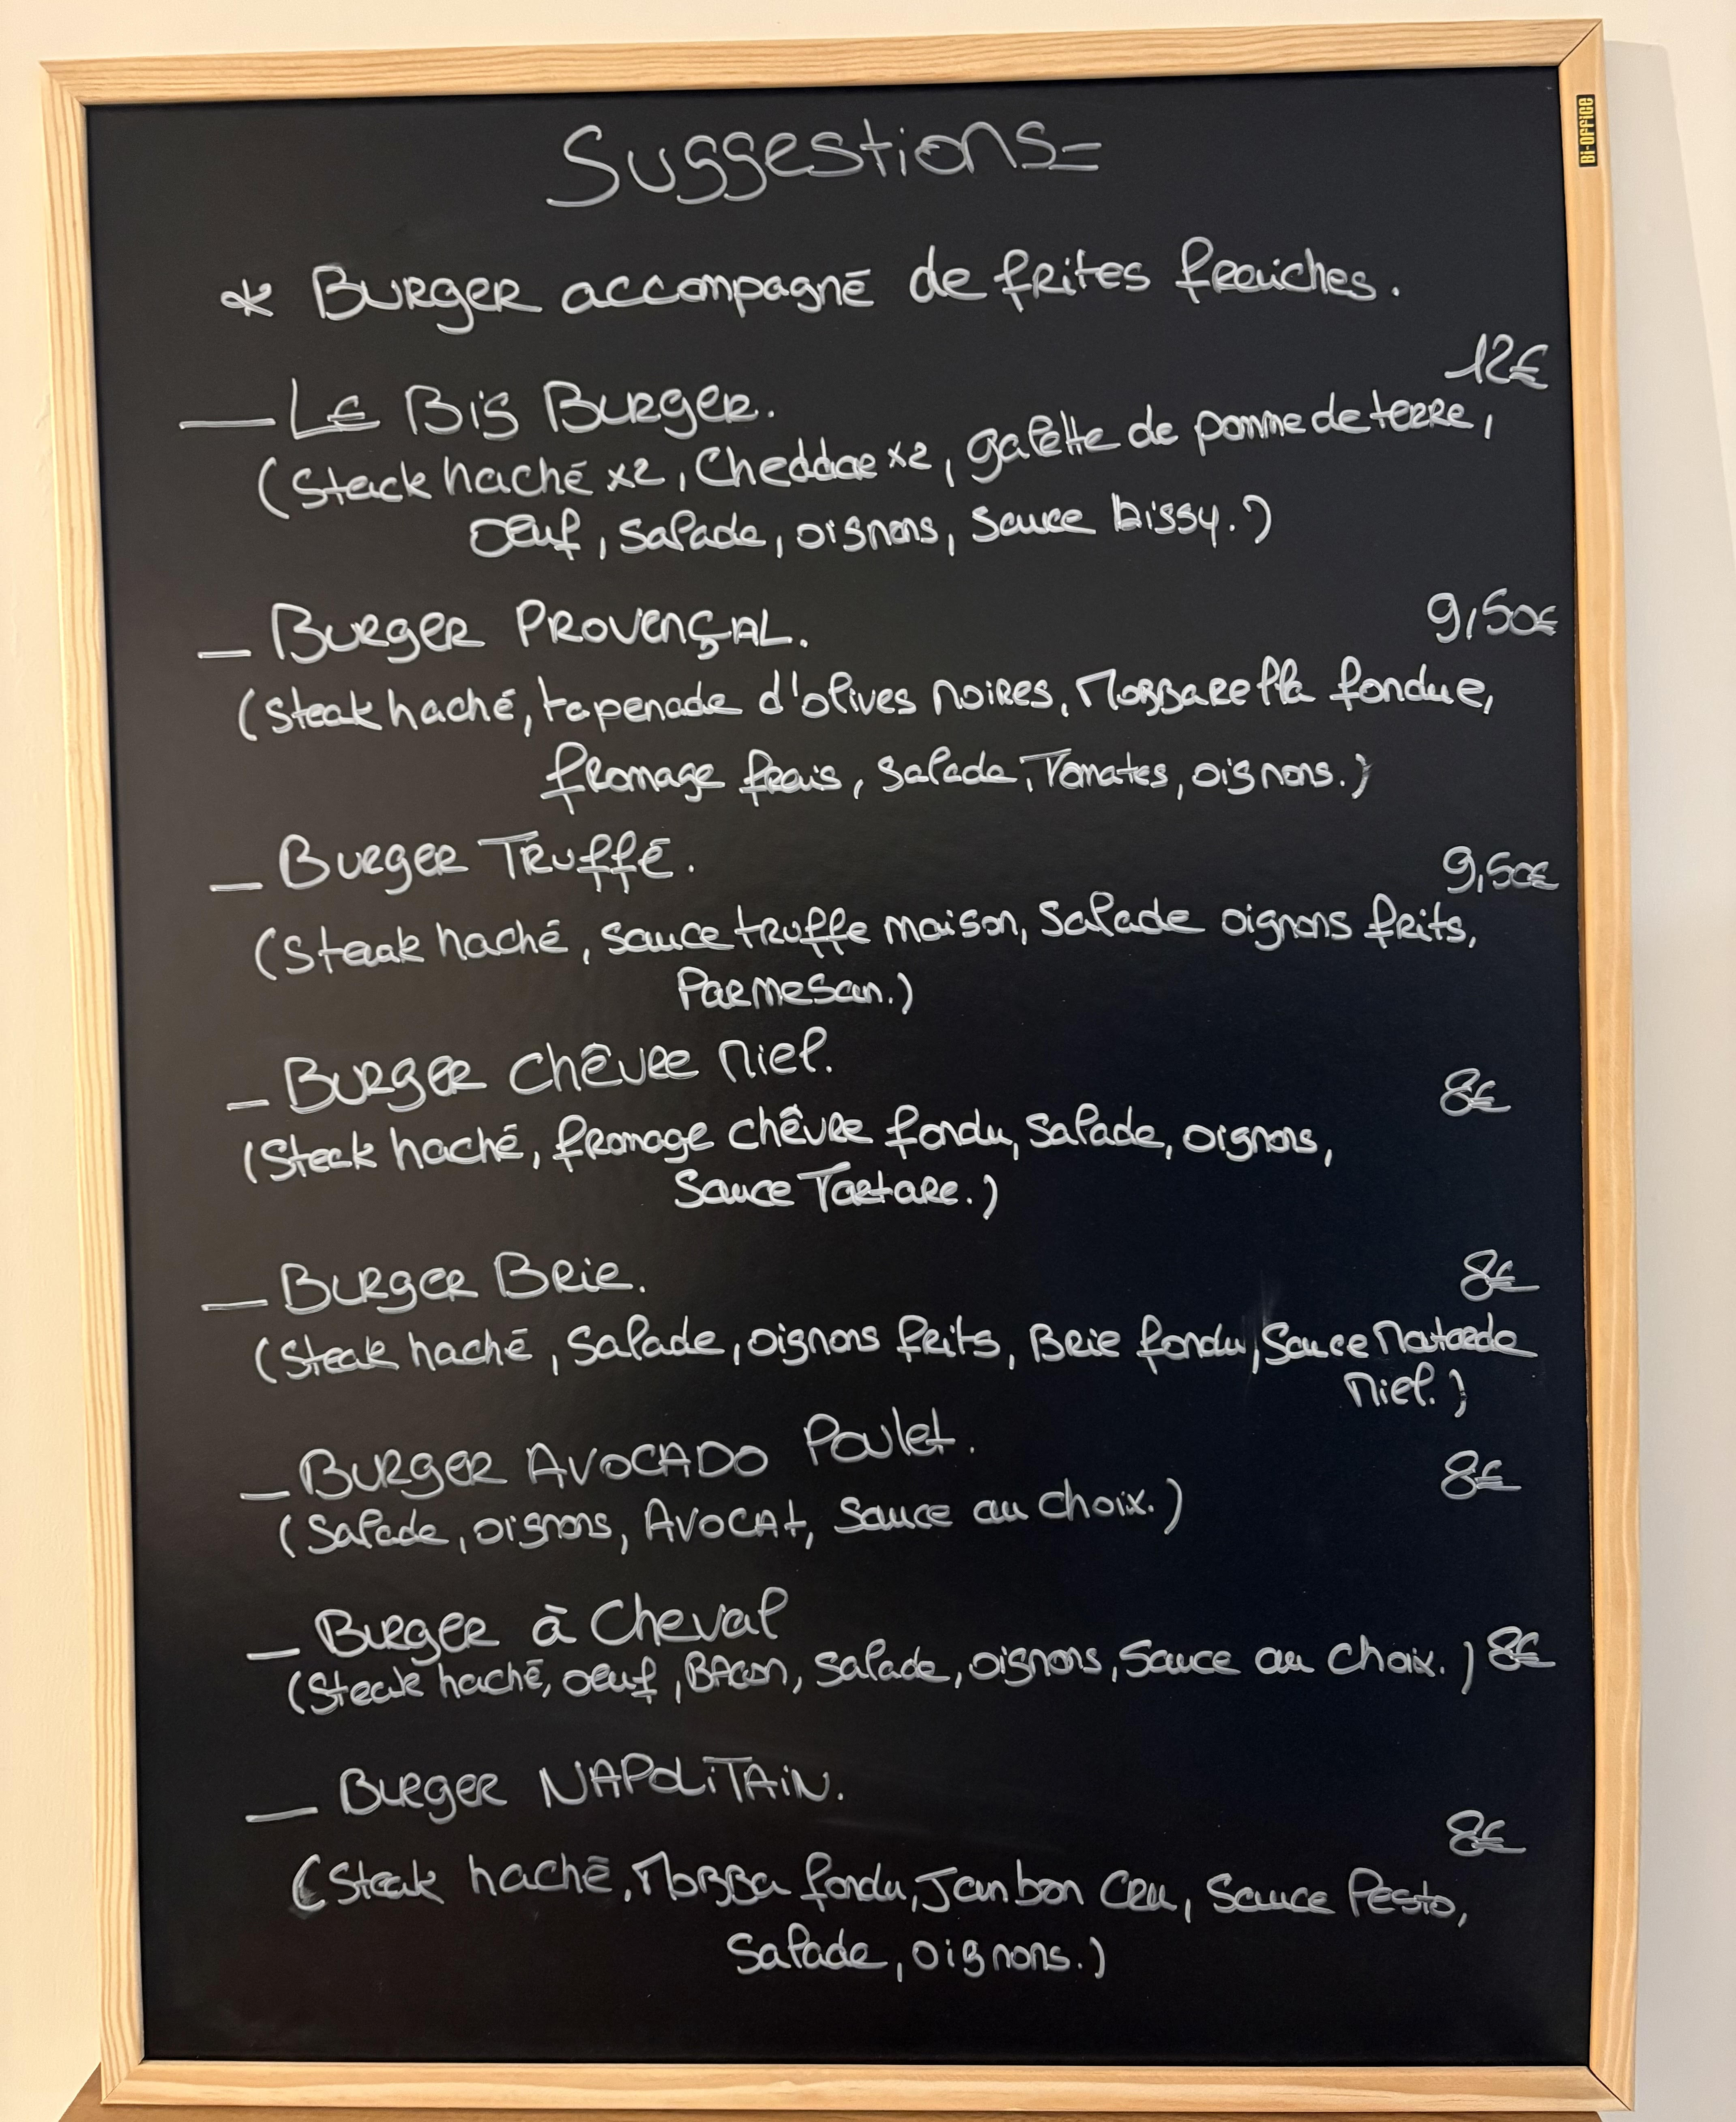 Suggestions=
* Burger accompagné de frites fraiches.
12€
— Le Bis Burger.
(Steack haché x2, Cheddar x2, galette de pomme de terre,
Oeuf, salade, oignons, sauce bissy.)
— Burger Provençal.
9,50€
(Steak haché, tapenade d'olives noires, Mozzarella fondue,
fromage frais, salade, Tomates, oignons.)
— Burger Truffé.
9,50€
(Steak haché, sauce truffe maison, Salade oignons frits,
Parmesan.)
— Burger Chêvre Miel.
8€
(Steak haché, fromage chêvre fondu, salade, oignons,
Sauce Tartare.)
— Burger Brie.
8€
(Steak haché, Salade, oignons frits, Brie fondu, Sauce Motarde
Miel.)
— Burger AVOCADO Poulet.
8€
(Salade, oignons, AVOCAt, Sauce au choix.)
— Burger à Cheval
(Steak haché, oeuf, BAcon, salade, oignons, Sauce au choix.) 8€
— Burger NAPOLiTAiN.
8€
(Steak haché, Mozza fondu, Jambon Cru, Sauce Pesto,
Salade, oignons.)
Bi-OFFiCE